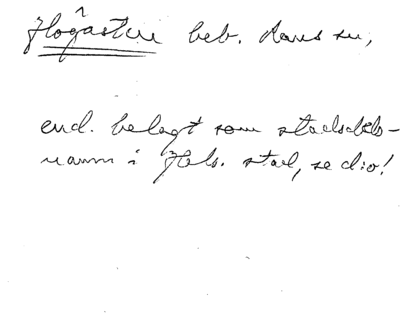 Högasten beb. Raus sn,
end. belagt som stadsdels-
namn i Hels. stad, se d:o!